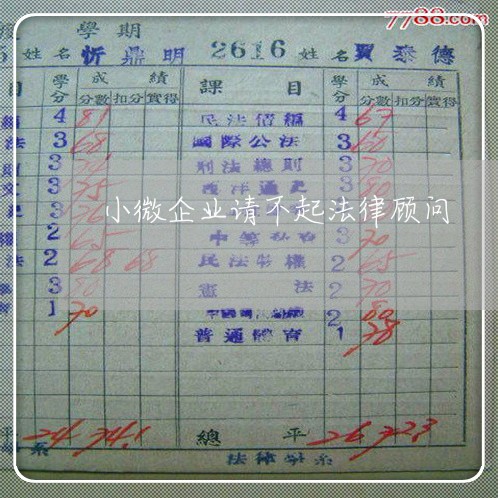 7788.com
學期
5 姓名 忻鼎明 2616 姓名 賈泰德
目 學分 成績 課目 學分 成績
分數 扣分 實得 分數 扣分 實得
4 81 民法債編 4 67
法 3 68 國際公法 3 60
則 3 刑法總則 3 70
3 75 西洋通史 3 80
3 76
小微企业请不起法律顾问
2 65 3 70
法 2 68 68 民法物權 2 65
3 80 憲法 2 70
1 70 2 80
普通體育 1 78
平 24 74.1 總平 26 72.3
系 法律學系